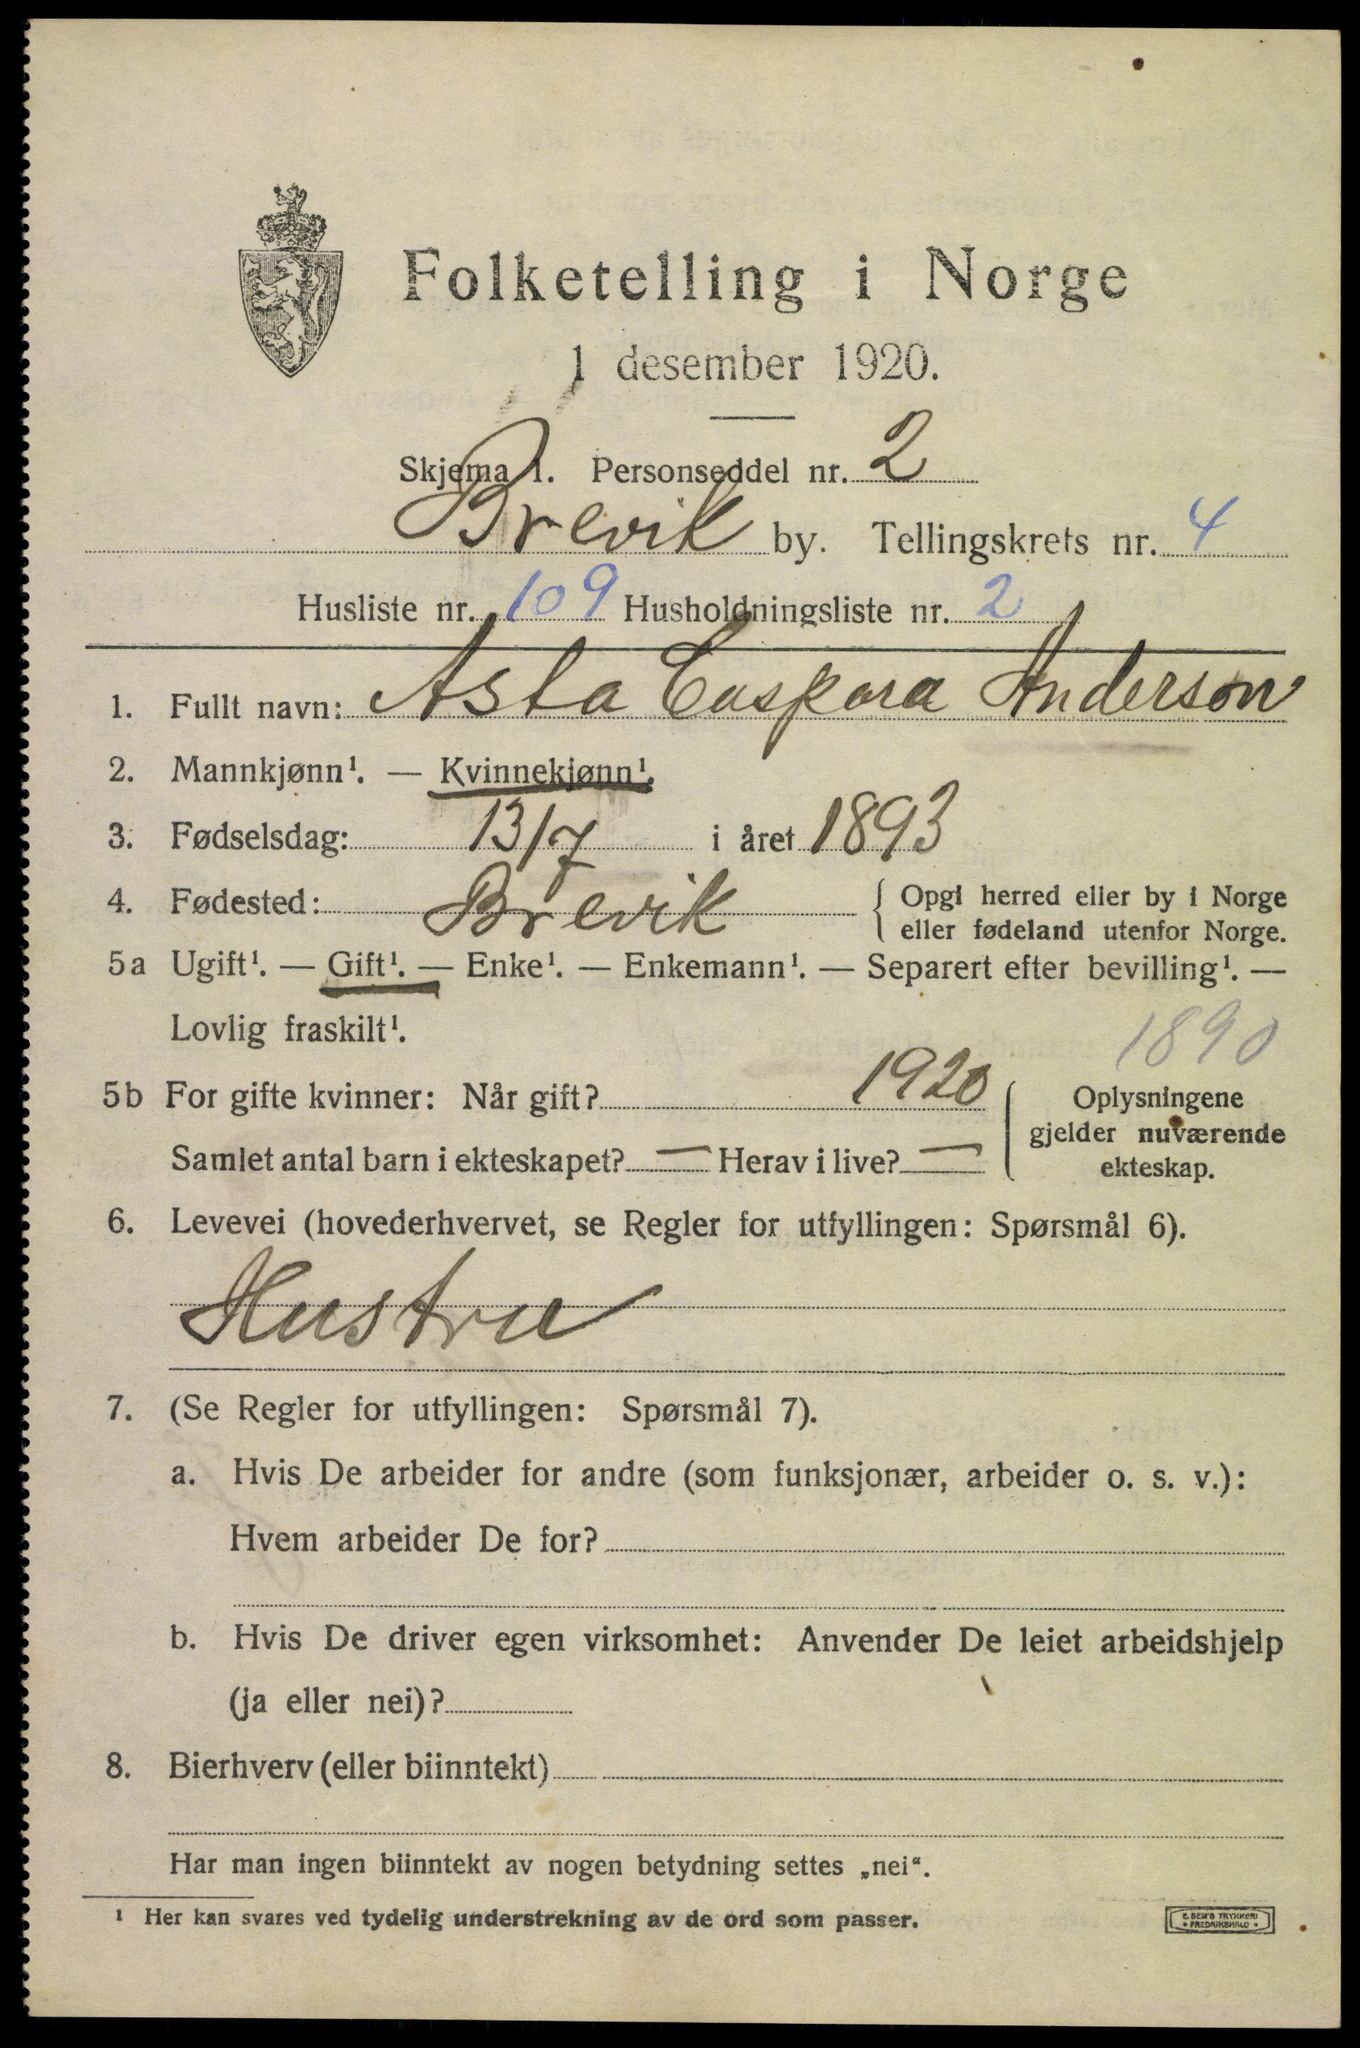 Folketelling i Norge
1 desember 1920.
Skjema 1. Personseddel nr. 2
Brevik by. Tellingskrets nr. 4
Husliste nr. 109 Husholdningsliste nr. 2
1. Fullt navn: Asta Caspara Anderson
2. Mannkjønn¹. — Kvinnekjønn¹.
3. Fødselsdag: 13/7 i året 1893
4. Fødested: Brevik { Opgi herred eller by i Norge
eller fødeland utenfor Norge.
5a Ugift¹. — Gift¹. — Enke¹. — Enkemann¹. — Separert efter bevilling¹. —
Lovlig fraskilt¹. 1890
5b For gifte kvinner: Når gift? 1920 Oplysningene
gjelder nuværende
Samlet antal barn i ekteskapet? — Herav i live? — ekteskap.
6. Levevei (hovederhvervet, se Regler for utfyllingen: Spørsmål 6).
Hustru
7. (Se Regler for utfyllingen: Spørsmål 7).
a. Hvis De arbeider for andre (som funksjonær, arbeider o. s. v.):
Hvem arbeider De for?
b. Hvis De driver egen virksomhet: Anvender De leiet arbeidshjelp
(ja eller nei)?
8. Bierhverv (eller biinntekt)
Har man ingen biinntekt av nogen betydning settes „nei“.
¹ Her kan svares ved tydelig understrekning av de ord som passer.
E. SEM'S TRYKKERI
• FREDRIKSHALD •